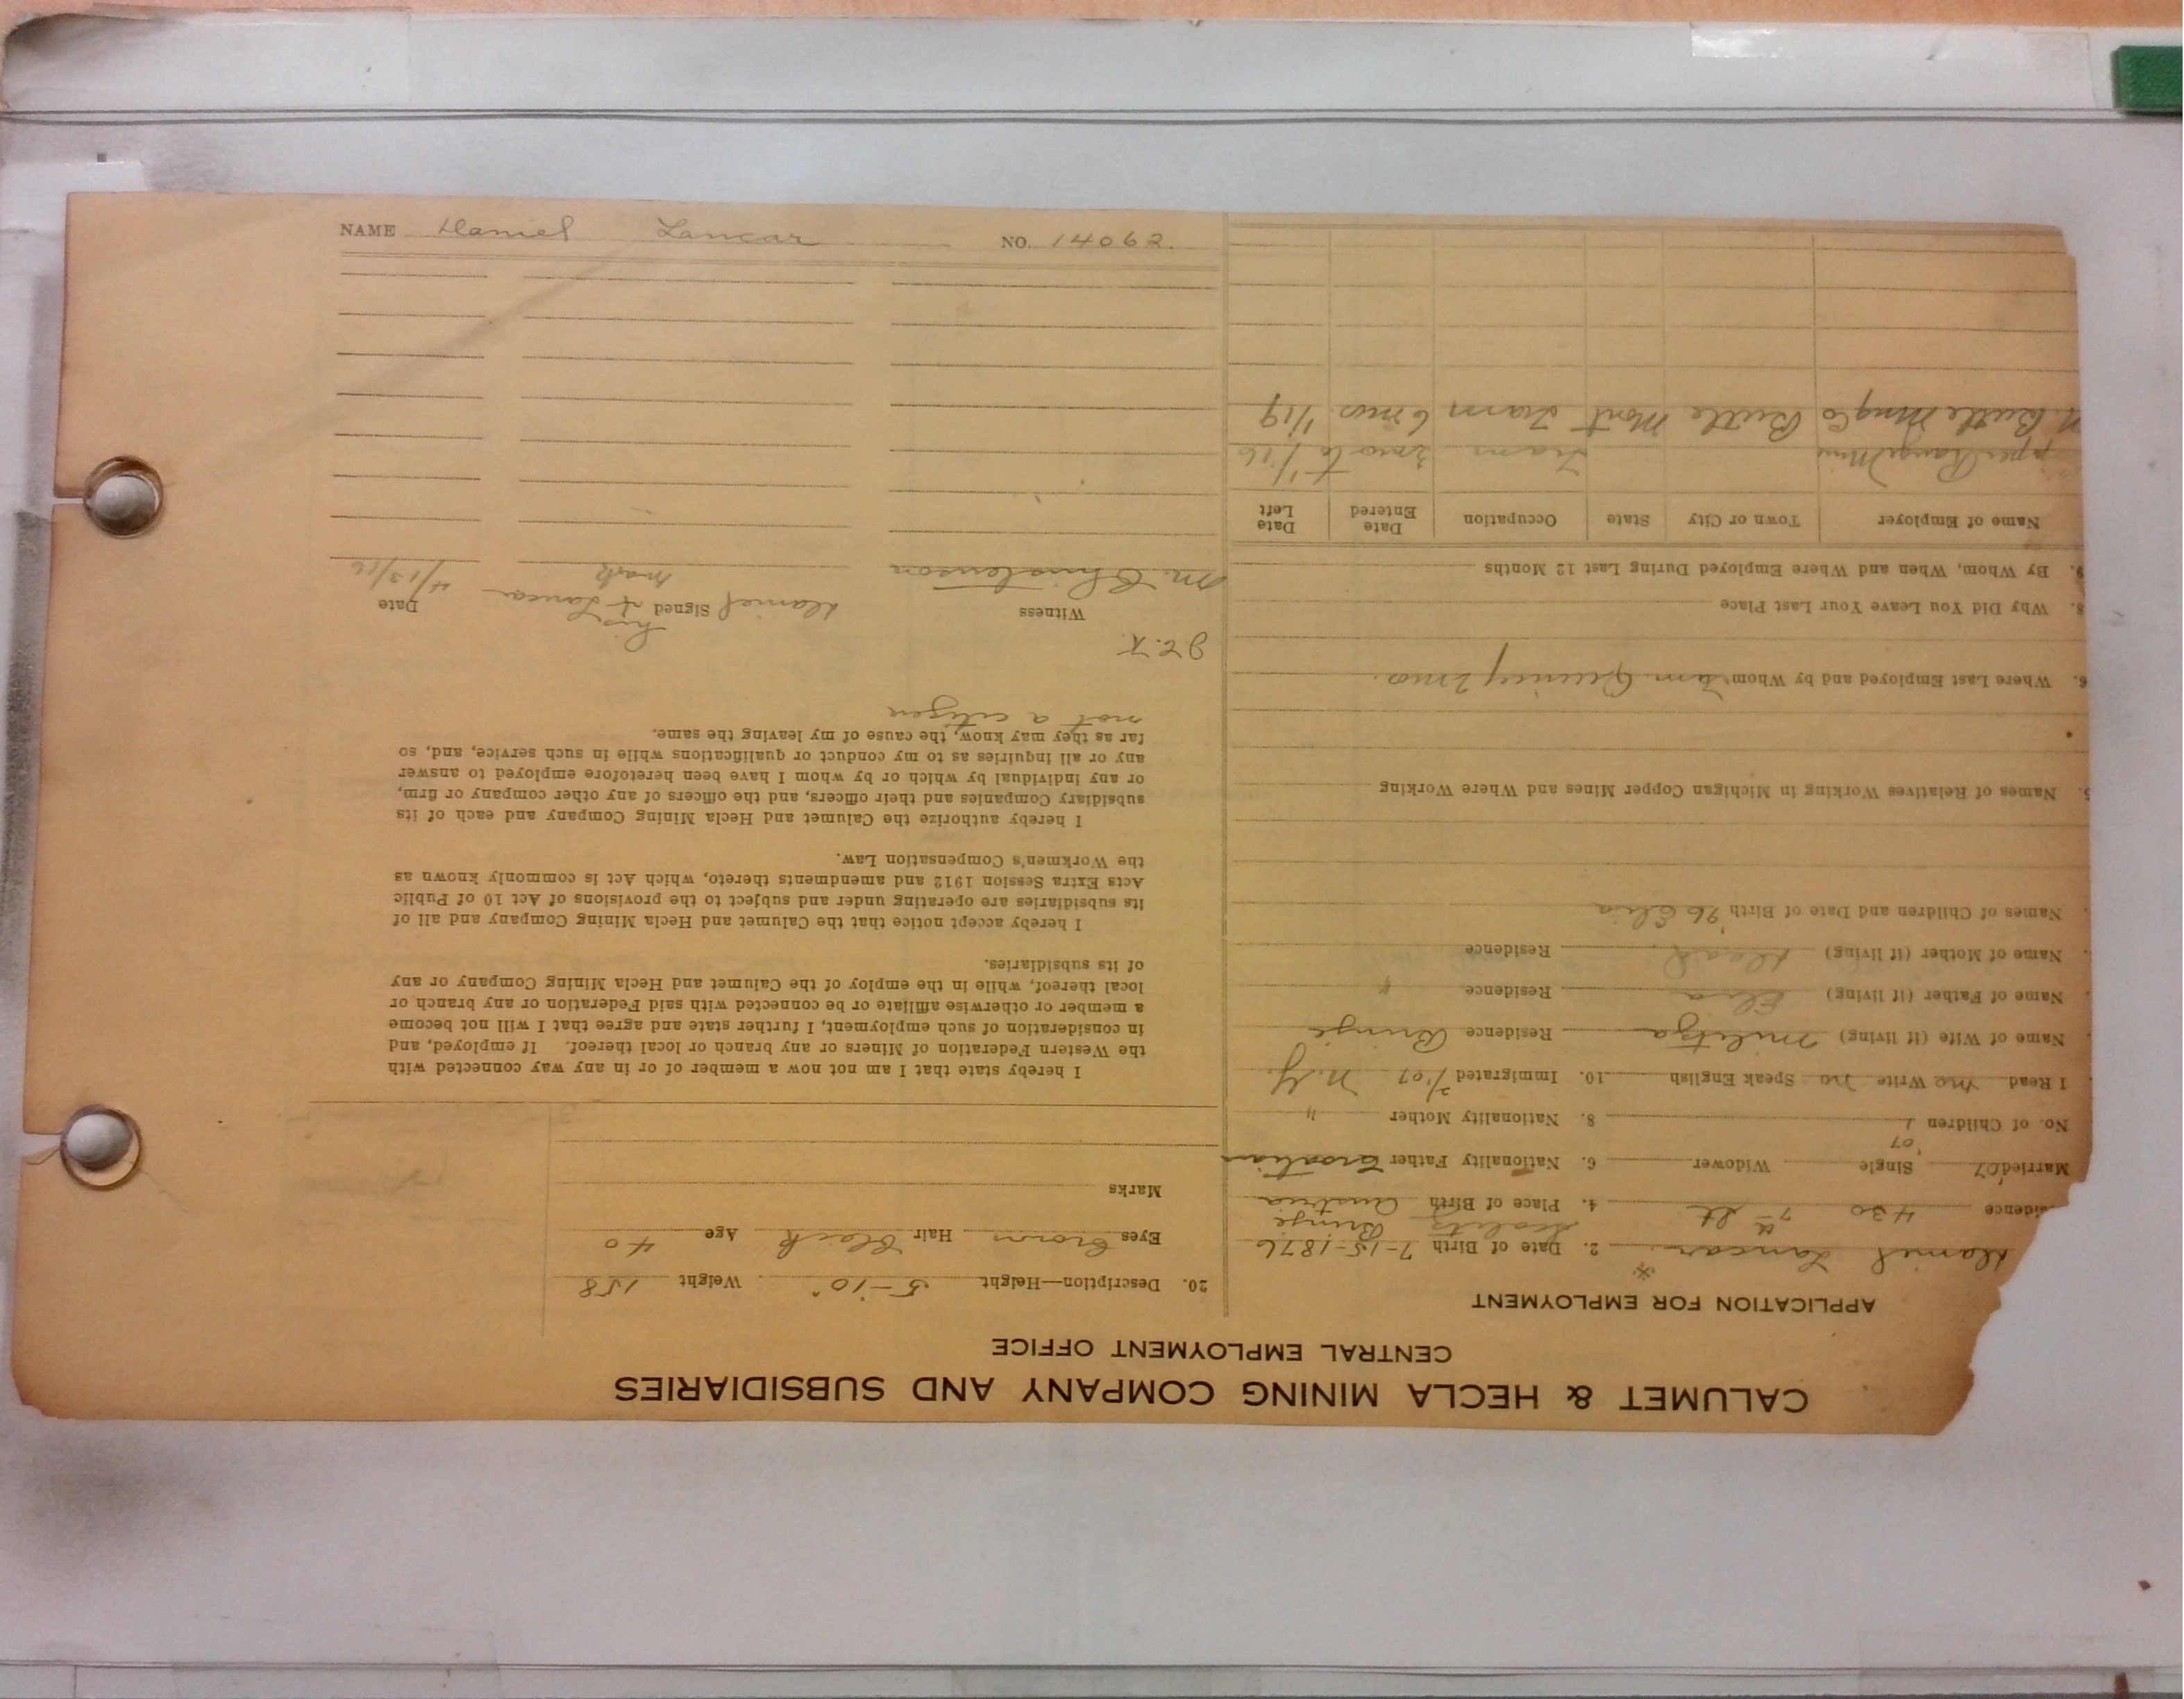 CALUMET & HECLA MINING COMPANY AND SUBSIDIARIES
CENTRAL EMPLOYMENT OFFICE
APPLICATION FOR EMPLOYMENT
Daniel Lancar 2. Date of Birth 7-15-1876
idence 430 7th St 4. Place of Birth Austria
Brinje
Married '07 Single Widower 6. Nationality Father Croatian
'07
No. of Children 1 8. Nationality Mother "
I Read no Write no Speak English 10. Immigrated 2/07 N.Y.
Name of Wife (if living) Militza Residence Brinje
Name of Father (if living) Elia Residence "
Name of Mother (if living) Dead Residence
Names of Children and Date of Birth '96 Elia
5. Names of Relatives Working in Michigan Copper Mines and Where Working
6. Where Last Employed and by Whom Tam. Quincy 2 mos.
8. Why Did You Leave Your Last Place
9. By Whom, When and Where Employed During Last 12 Months
Name of Employer Town or City State Occupation Date Entered Date Left
pper Range Mine Tram 3 mos to 1/16
N. Butte Mng Co Butte Mont Tram 6 mos 1/19
20. Description—Height 5-10" Weight 158
Eyes Brown Hair Black Age 40
Marks
I hereby state that I am not now a member of or in any way connected with
the Western Federation of Miners or any branch or local thereof. If employed, and
in consideration of such employment, I further state and agree that I will not become
a member or otherwise affiliate or be connected with said Federation or any branch or
local thereof, while in the employ of the Calumet and Hecla Mining Company or any
of its subsidiaries.
I hereby accept notice that the Calumet and Hecla Mining Company and all of
its subsidiaries are operating under and subject to the provisions of Act 10 of Public
Acts Extra Session 1912 and amendments thereto, which Act is commonly known as
the Workmen's Compensation Law.
I hereby authorize the Calumet and Hecla Mining Company and each of its
subsidiary Companies and their officers, and the officers of any other company or firm,
or any individual by which or by whom I have been heretofore employed to answer
any or all inquiries as to my conduct or qualifications while in such service, and, so
far as they may know, the cause of my leaving the same.
not a citizen
his
Witness Daniel Signed x Lancar Date
M. Christenson mark 4/13/16
NAME Daniel Lancar NO. 14062.